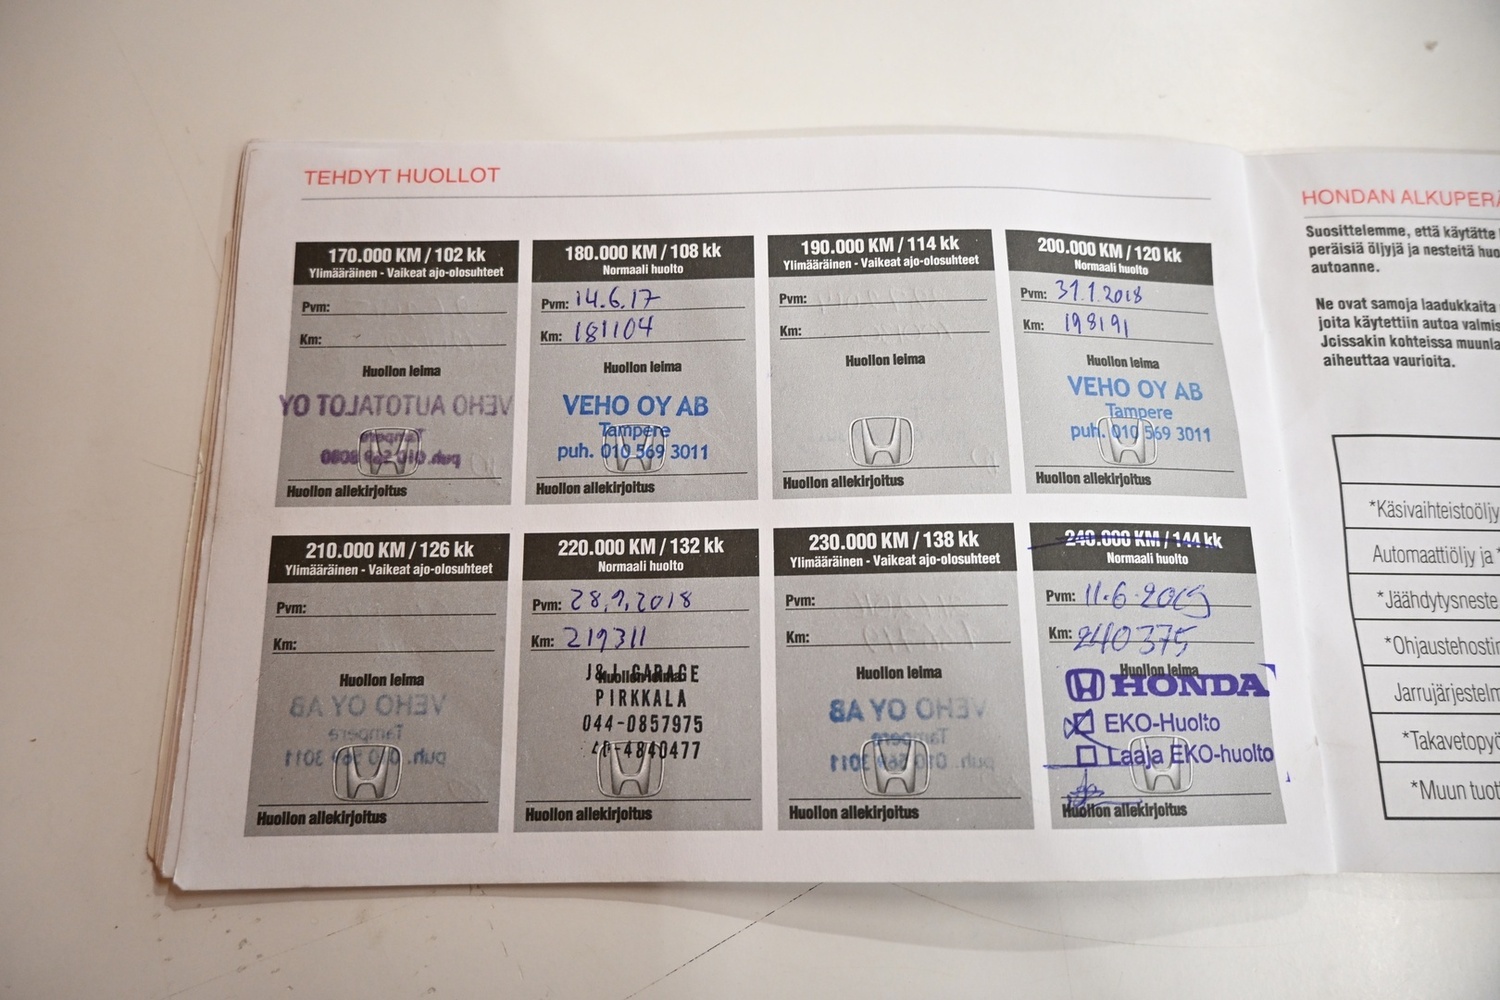 TEHDYT HUOLLOT
170.000 KM / 102 kk
Ylimääräinen - Vaikeat ajo-olosuhteet
Pvm:
Km:
Huollon leima
VEHO AUTOTALOT OY
Tampere
puh. 010 569 8080
Huollon allekirjoitus
180.000 KM / 108 kk
Normaali huolto
Pvm: 14.6.17
Km: 181104
Huollon leima
VEHO OY AB
Tampere
puh. 010 569 3011
Huollon allekirjoitus
190.000 KM / 114 kk
Ylimääräinen - Vaikeat ajo-olosuhteet
Pvm:
Km:
Huollon leima
Huollon allekirjoitus
200.000 KM / 120 kk
Normaali huolto
Pvm: 31.1.2018
Km: 198191
Huollon leima
VEHO OY AB
Tampere
puh. 010 569 3011
Huollon allekirjoitus
210.000 KM / 126 kk
Ylimääräinen - Vaikeat ajo-olosuhteet
Pvm:
Km:
Huollon leima
VEHO OY AB
Tampere
puh. 010 569 3011
Huollon allekirjoitus
220.000 KM / 132 kk
Normaali huolto
Pvm: 28.9.2018
Km: 219311
Huollon leima
J&L GARAGE
PIRKKALA
044-0857975
-4840477
Huollon allekirjoitus
230.000 KM / 138 kk
Ylimääräinen - Vaikeat ajo-olosuhteet
Pvm:
Km:
Huollon leima
VEHO OY AB
Tampere
puh. 010 569 3011
Huollon allekirjoitus
240.000 KM / 144 kk
Normaali huolto
Pvm: 11.6.2019
Km: 240375
Huollon leima
HONDA
EKO-Huolto
Laaja EKO-huolto
Huollon allekirjoitus
HONDAN ALKUPERÄ
Suosittelemme, että käytätte
peräisiä öljyjä ja nesteitä huo
autoanne.
Ne ovat samoja laadukkaita
joita käytettiin autoa valmis
Joissakin kohteissa muunla
aiheuttaa vaurioita.
*Käsivaihteistoöljy
Automaattiöljy ja *
*Jäähdytysneste
*Ohjaustehostin
Jarrujärjestelm
*Takavetopyö
*Muun tuot